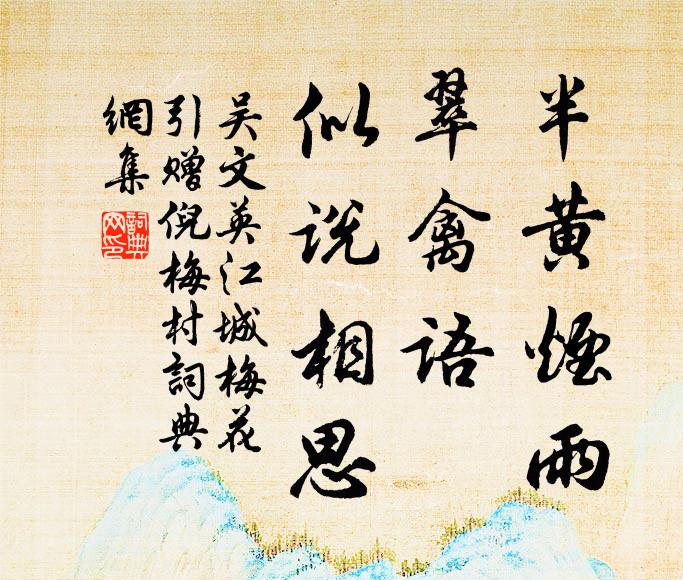 半黄煙雨
翠禽語
似说相思
吴文英江城梅花
引赠倪梅村詞典
網集
詞典
网印